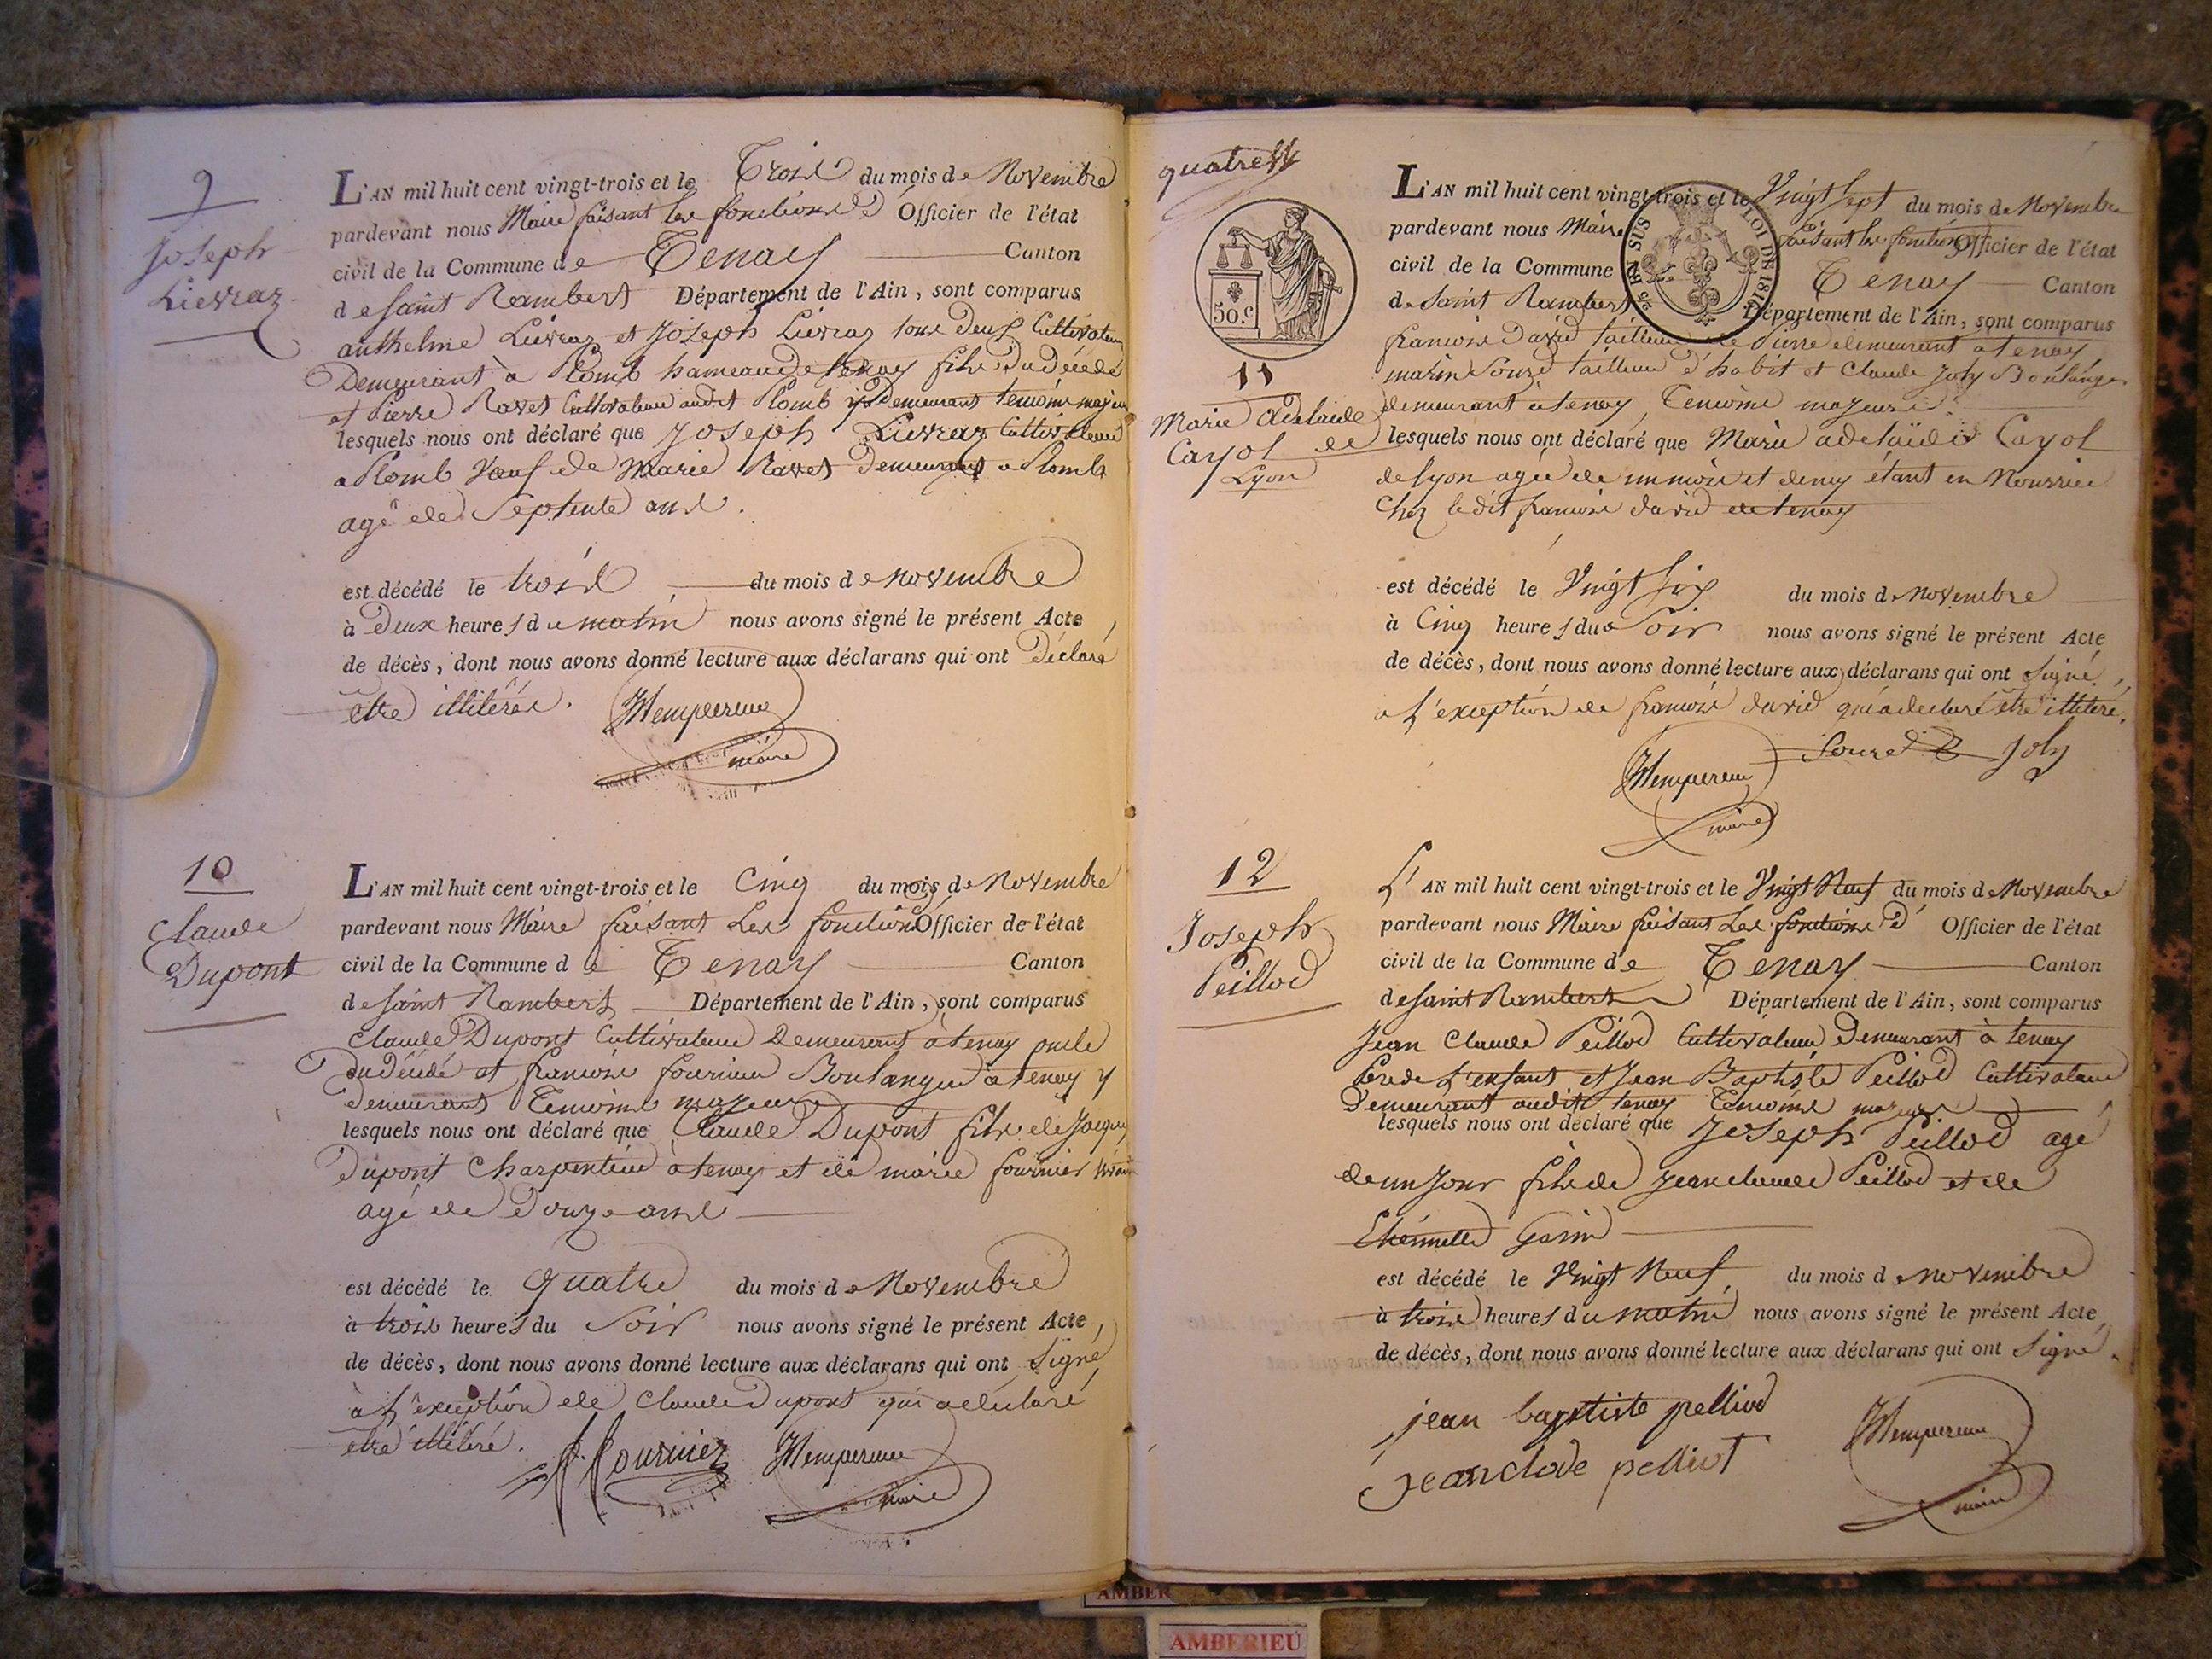 9
Joseph
Lievraz
L'AN mil huit cent vingt-trois et le Trois du mois de Novembre
pardevant nous Maire faisant les fonctions d' Officier de l'état
civil de la Commune de Tenay Canton
de saint Rambert Département de l'Ain, sont comparus
anthelme Lievraz et Joseph Lievraz tous deux Cultivateurs
Demeurant à Plomb hameau de tenay fils du décédé
et Pierre Ravet Cultivateur audit Plomb y Demeurant temoins majeurs
lesquels nous ont déclaré que Joseph Lievraz Cultivateur
a Plomb Veuf de Marie Ravet Demeurant a Plomb
agé de Septente ans.
est décédé le trois du mois de Novembre
à Deux heures du matin nous avons signé le présent Acte
de décès, dont nous avons donné lecture aux déclarans qui ont Déclaré
etre illiterés.
maire
10
Claude
Dupont
L'AN mil huit cent vingt-trois et le Cinq du mois de Novembre
pardevant nous Maire faisant Les fonctions d' Officier de l'état
civil de la Commune de Tenay Canton
de saint Rambert Département de l'Ain, sont comparus
Claude Dupont Cultivateur Demeurant à tenay oncle
du décédé et francois fournier Boulanger à tenay y
demeurant Temoins majeurs
lesquels nous ont déclaré que Claude Dupont fils de Jacques
Dupont Charpentier à tenay et de marie fournier
agé de Douze ans
est décédé le quatre du mois de Novembre
à trois heures du Soir nous avons signé le présent Acte,
de décès, dont nous avons donné lecture aux déclarans qui ont signé,
à l'exception de Claude Dupont qui a déclaré
etre illiteré.
fournier
maire
quatre
50.c
EN SUS
LOI DE 1816
11
Marie Adelaide
Cayol de
Lyon
L'AN mil huit cent vingt-trois et le Vingt Sept du mois de Novembre
pardevant nous Maire faisant les fonctions d'Officier de l'état
civil de la Commune Tenay Canton
de Saint Rambert Département de l'Ain, sont comparus
francois David tailleur de Pierre demeurant à tenay
marin Sourd tailleur d'habit et Claude Joly Boulanger
demeurant à tenay, Temoins majeurs.
lesquels nous ont déclaré que Marie adelaïde Cayol
de lyon agée de un mois et demy étant en Nourrice
Chez ledit francois david de tenay
est décédé le Vingt Six du mois de Novembre
à Cinq heures du Soir nous avons signé le présent Acte
de décès, dont nous avons donné lecture aux déclarans qui ont signé,
a l'exception de francois david qui a declaré etre illiteré.
Sourd Joly
maire
12
Joseph
Peillod
L'AN mil huit cent vingt-trois et le Vingt Neuf du mois de Novembre
pardevant nous Maire faisant Les fonctions d' Officier de l'état
civil de la Commune de Tenay Canton
de saint Rambert Département de l'Ain, sont comparus
Jean Claude Peillod Cultivateur Demeurant à tenay
Pere de L'enfant et Jean Baptiste Peillod Cultivateur
Demeurant audit tenay Temoins majeurs
lesquels nous ont déclaré que Joseph Peillod agé
de un Jour fils de Jean claude Peillod et de
Garin
est décédé le Vingt Neuf du mois de novembre
à trois heures du matin nous avons signé le présent Acte,
de décès, dont nous avons donné lecture aux déclarans qui ont signé.
jean baptiste pelliod
jean clode pelliot
maire
AMBER
AMBERIEU